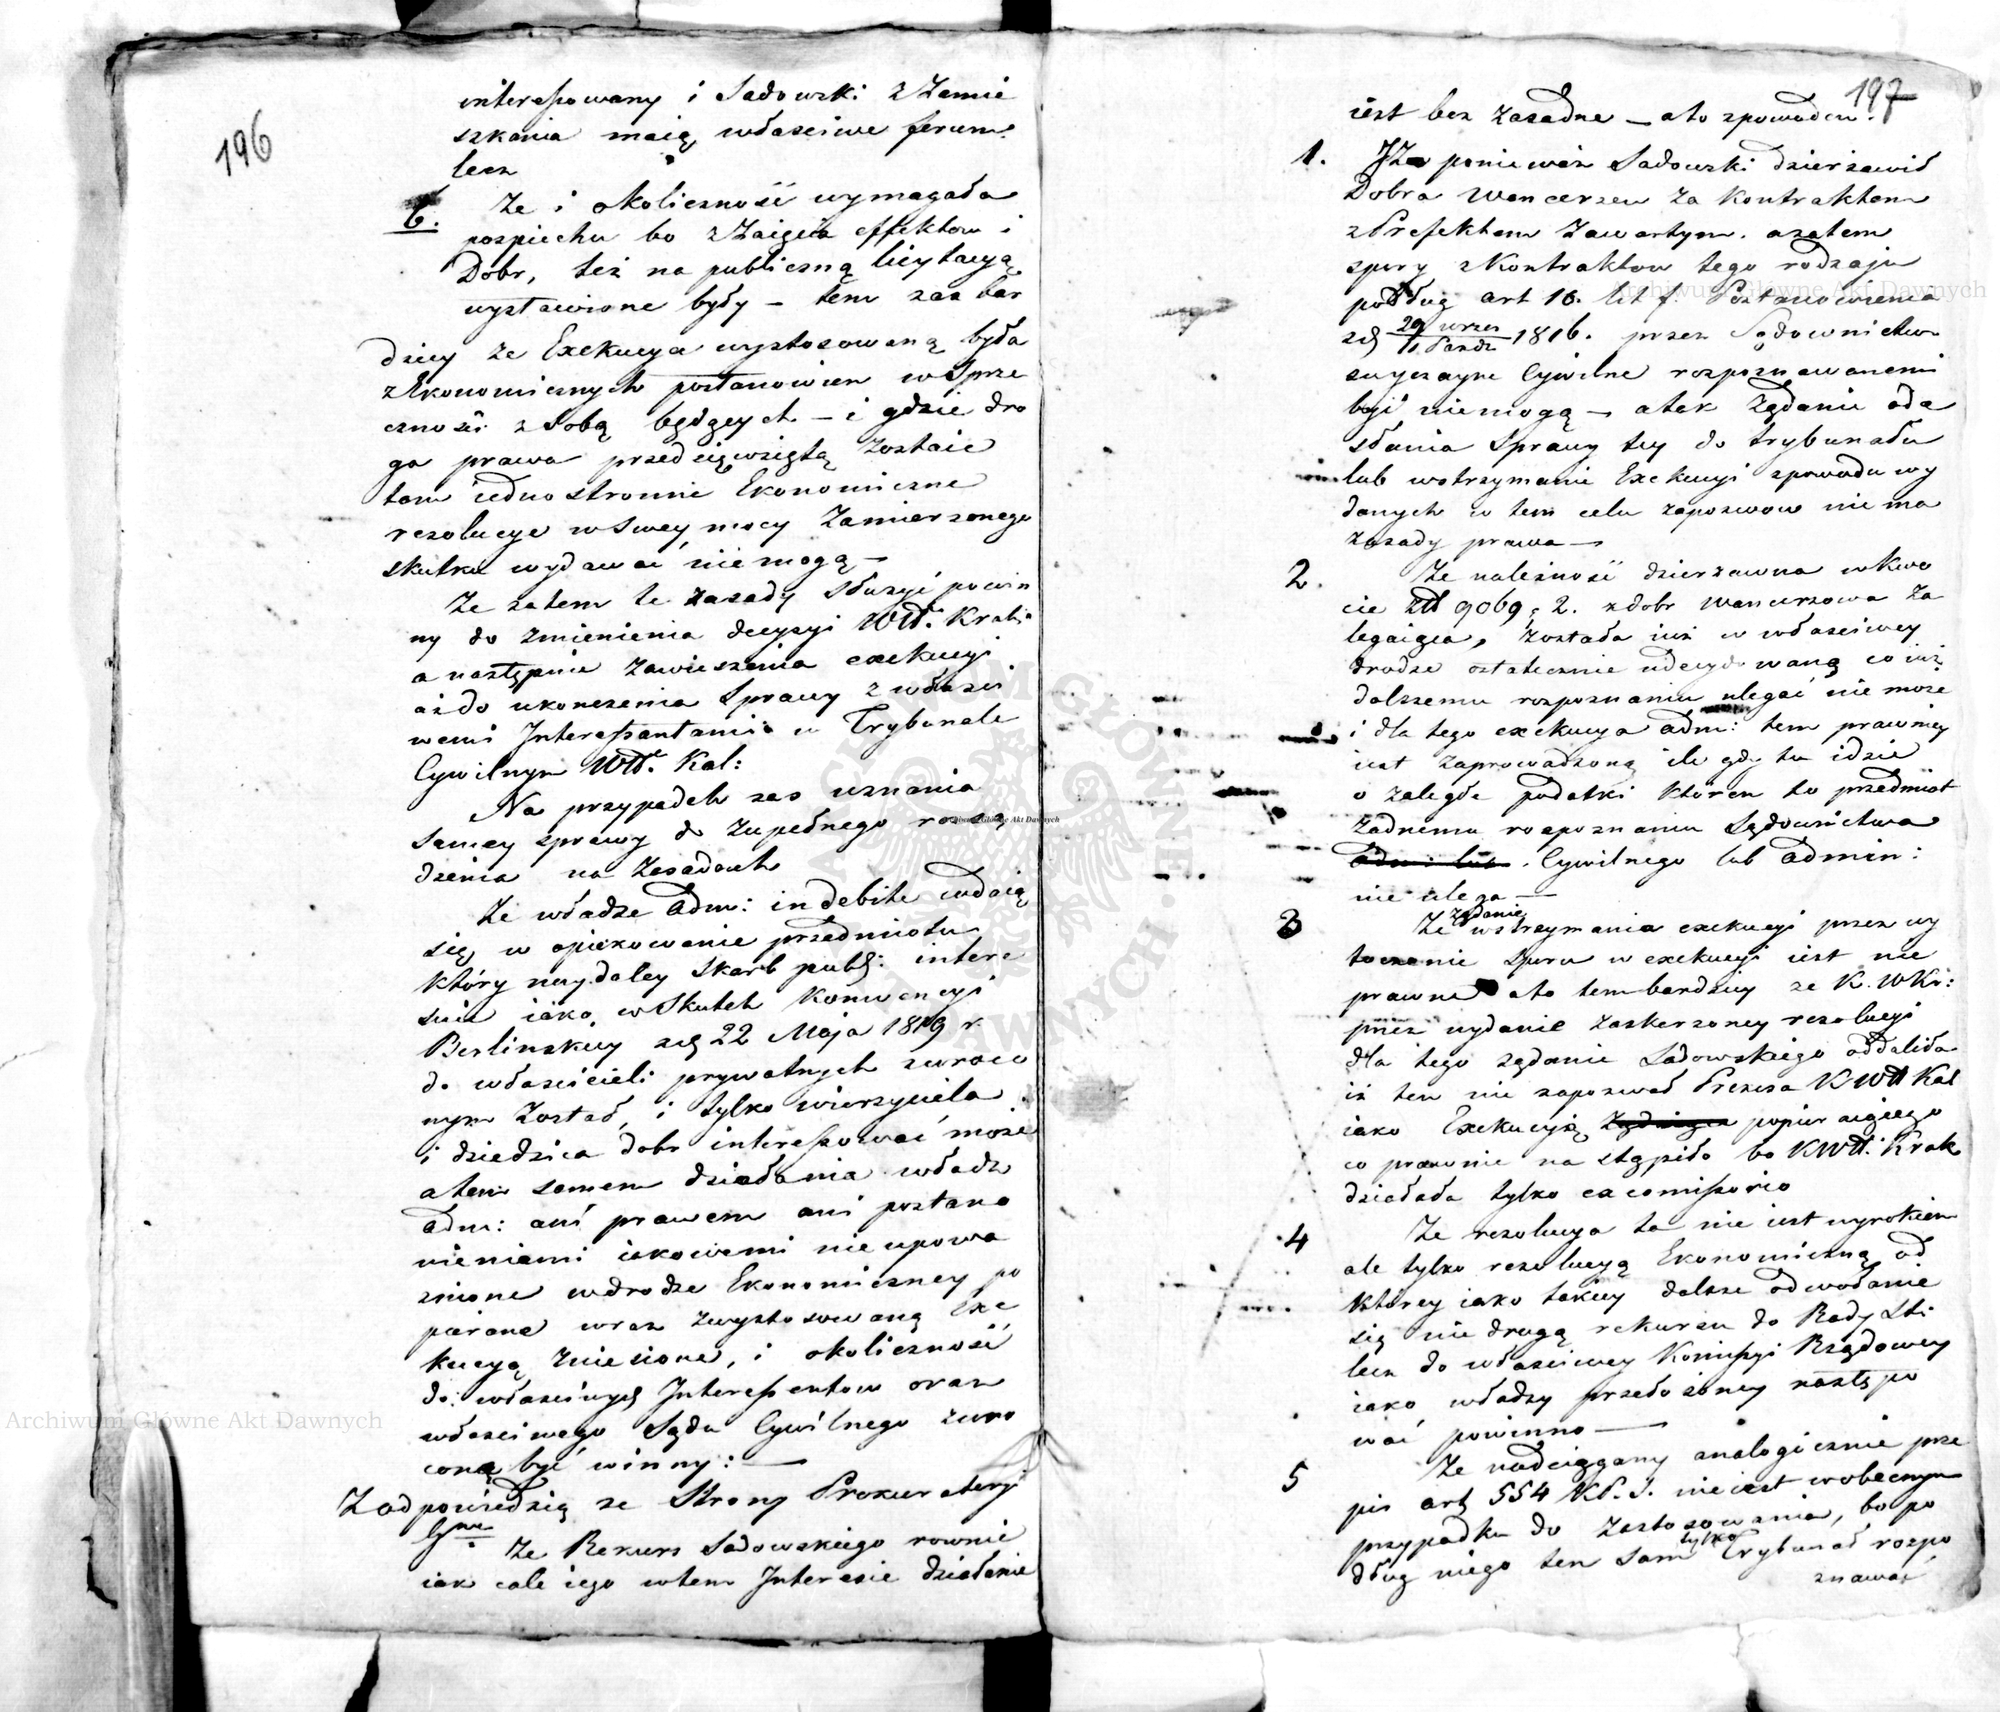 196
interessowany i Sadowski z Zamie
szkania maią właściwe forum.
lecz
6. Że i okoliczność wymagała
pospiechu bo z Zaięcia effektow i
Dobr, też na publiczną licytacyą
wystawione były — tem zas bar
dziey że Exekucya wystosowaną była
z Ekonomicznych postanowien w Sprze
czności z Sobą będących — i gdzie dro
ga prawa przedsięwziętą zostaie
tam iednostronnie Ekonomiczne
rezolucye w Swey mocy Zamierzonego
skutku wydawać niemogą —
Że zatem te zasady służyć powin
ny do zmienienia decyzyi Wdt. Krak:
a następnie zawieszenia exekucyi
aż do ukonczenia Sprawy z właści
wemi Interessantami w Trybunale
Cywilnym Wdt. Kal:
Na przypadek zas uznania
samey sprawy do zupełnego rozsą
dzenia na Zasadach
Że władze adm: indebite wdaią
się w opiekowanie przedmiotu
który naydaley Skarb publ: intere
suie iako w Skutek Konwencyi
Berlinskiey z d 22 Maja 1819 r.
do właścicieli prywatnych zwroco
nym Został, i tylko wierzyciela
i dziedzica dobr interessować może
a tem samem działania władz
adm: ani prawem ani postano
wieniami iakowemi nieupowa
żnione w drodze Ekonomiczney po
pierane wraz z wystosowaną Exe
kucyą zniesione, i okoliczność
do właściwych Interessentow oraz
właściwego Sądu Cywilnego zwro
coną być winny: —
Z odpowiedzią ze Strony Prokuratoryi
Gney
Że Rekurs Sadowskiego rownie
iak całe iego w tem Interesie działanie
197
iest bez zasadne — a to z powodu:
1. Że ponieważ Sadowski dzierżawił
Dobra Wancerzew za Kontraktem
z Prefektem Zawartym. a zatem
spory z Kontraktow tego rodzaju
podług art 16. lit f. Postanowienia
z d 29 wrzes / 11 Pazdz 1816. przez Sądownictwo
zwyczayne Cywilne rozpoznawanemi
być niemogą — a tak żądanie ode
słania Sprawy tey do trybunału
lub wstrzymanie Exekucyi z powodu wy
danych w tem celu zapozwow nie ma
zasady prawa —
2. Że należność dzierżawna w Kwo
cie złł 9069 : 2. z dobr Wancerzowa Za
legaiąca, została iuż w właściwey
drodze ostatecznie udecydowaną co iuż
dalszemu rozpoznaniu ulegać nie może
i dla tego exekucya adm: tem prawniey
iest zaprowadzoną ile gdy tu idzie
o zaległe podatki któren to przedmiot
żadnemu rozpoznaniu Sądownictwa
adm: lub Cywilnego lub admin:
nie ulega —
3 Że żądanie wstrzymania exekucyi przez wy
toczenie sporu w exekucyi iest nie
prawne a to tem bardziey że K. W Kr:
przez wydanie zaskarzoney rezolucyi
dla tego żądanie Sadowskiego oddaliła
iż ten nie zapozwał Prezesa K Wdt Kal
iako Exekucyią popieraiącego
co prawnie nastąpiło bo K Wdt. Krak
działała tylko ex comissorio
4 Że rezolucya ta nie iest wyrokiem
ale tylko rezolucyą Ekonomiczną od
którey iako takiey dalsze odwołanie
się nie drogą rekursu do Rady Sta
lecz do właściwey Komissyi Rządowey
iako władzy przełożoney nastąpo
wać powinno —
5 Że nadciągany analogicznie prze
pis art 554 K.P.S. nie iest w obecnym
przypadku do zastosowania, bo po
dług niego ten Sam tylko Trybunał rozpo
znawać